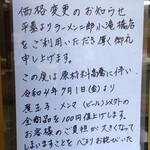 価格変更のお知らせ
平素よりラーメン二郎小滝橋店
をご利用いただき厚く御礼
申し上げます。
この度は原材料高騰に伴い
令和4年7月1日(金)より
煮玉子、メンマ(ビール)以外の
全商品を100円値上げします。
お客様のご負担が大きくなって
しまいますことを心よりお詫びいた